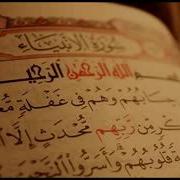 سُورَةُ الْأَنْبِيَاءِ
اللَّهِ الرَّحْمَٰنِ الرَّحِيمِ
حِسَابُهُمْ وَهُمْ فِي غَفْلَةٍ
مِّن رَّبِّهِم مُّحْدَثٍ إِلَّا
قُلُوبُهُمْ وَأَسَرُّوا النَّجْوَى